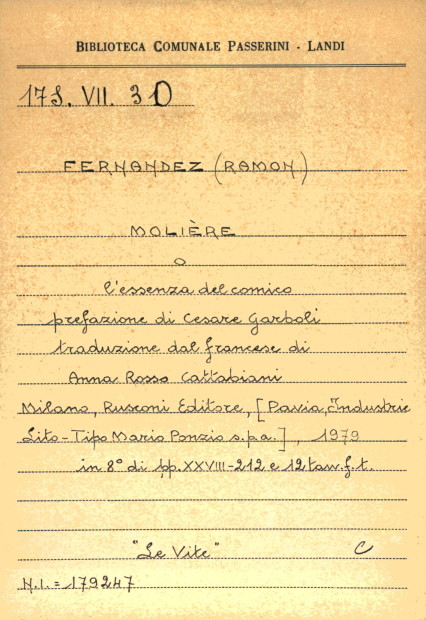 BIBLIOTECA COMUNALE PASSERINI - LANDI
17S. VII. 3D
FERNANDEZ (RAMON)
MOLIÈRE
o
l'essenza del comico
prefazione di Cesare Garboli
traduzione dal francese di
Anna Rosso Cattabiani
Milano, Rusconi Editore, [Pavia, Industrie
Lito-Tipo Mario Ponzio s.p.a.], 1979
in 8° di pp. XXVIII-212 e 12 tav. f. t.
"Le Vite" C
N.I. = 179247